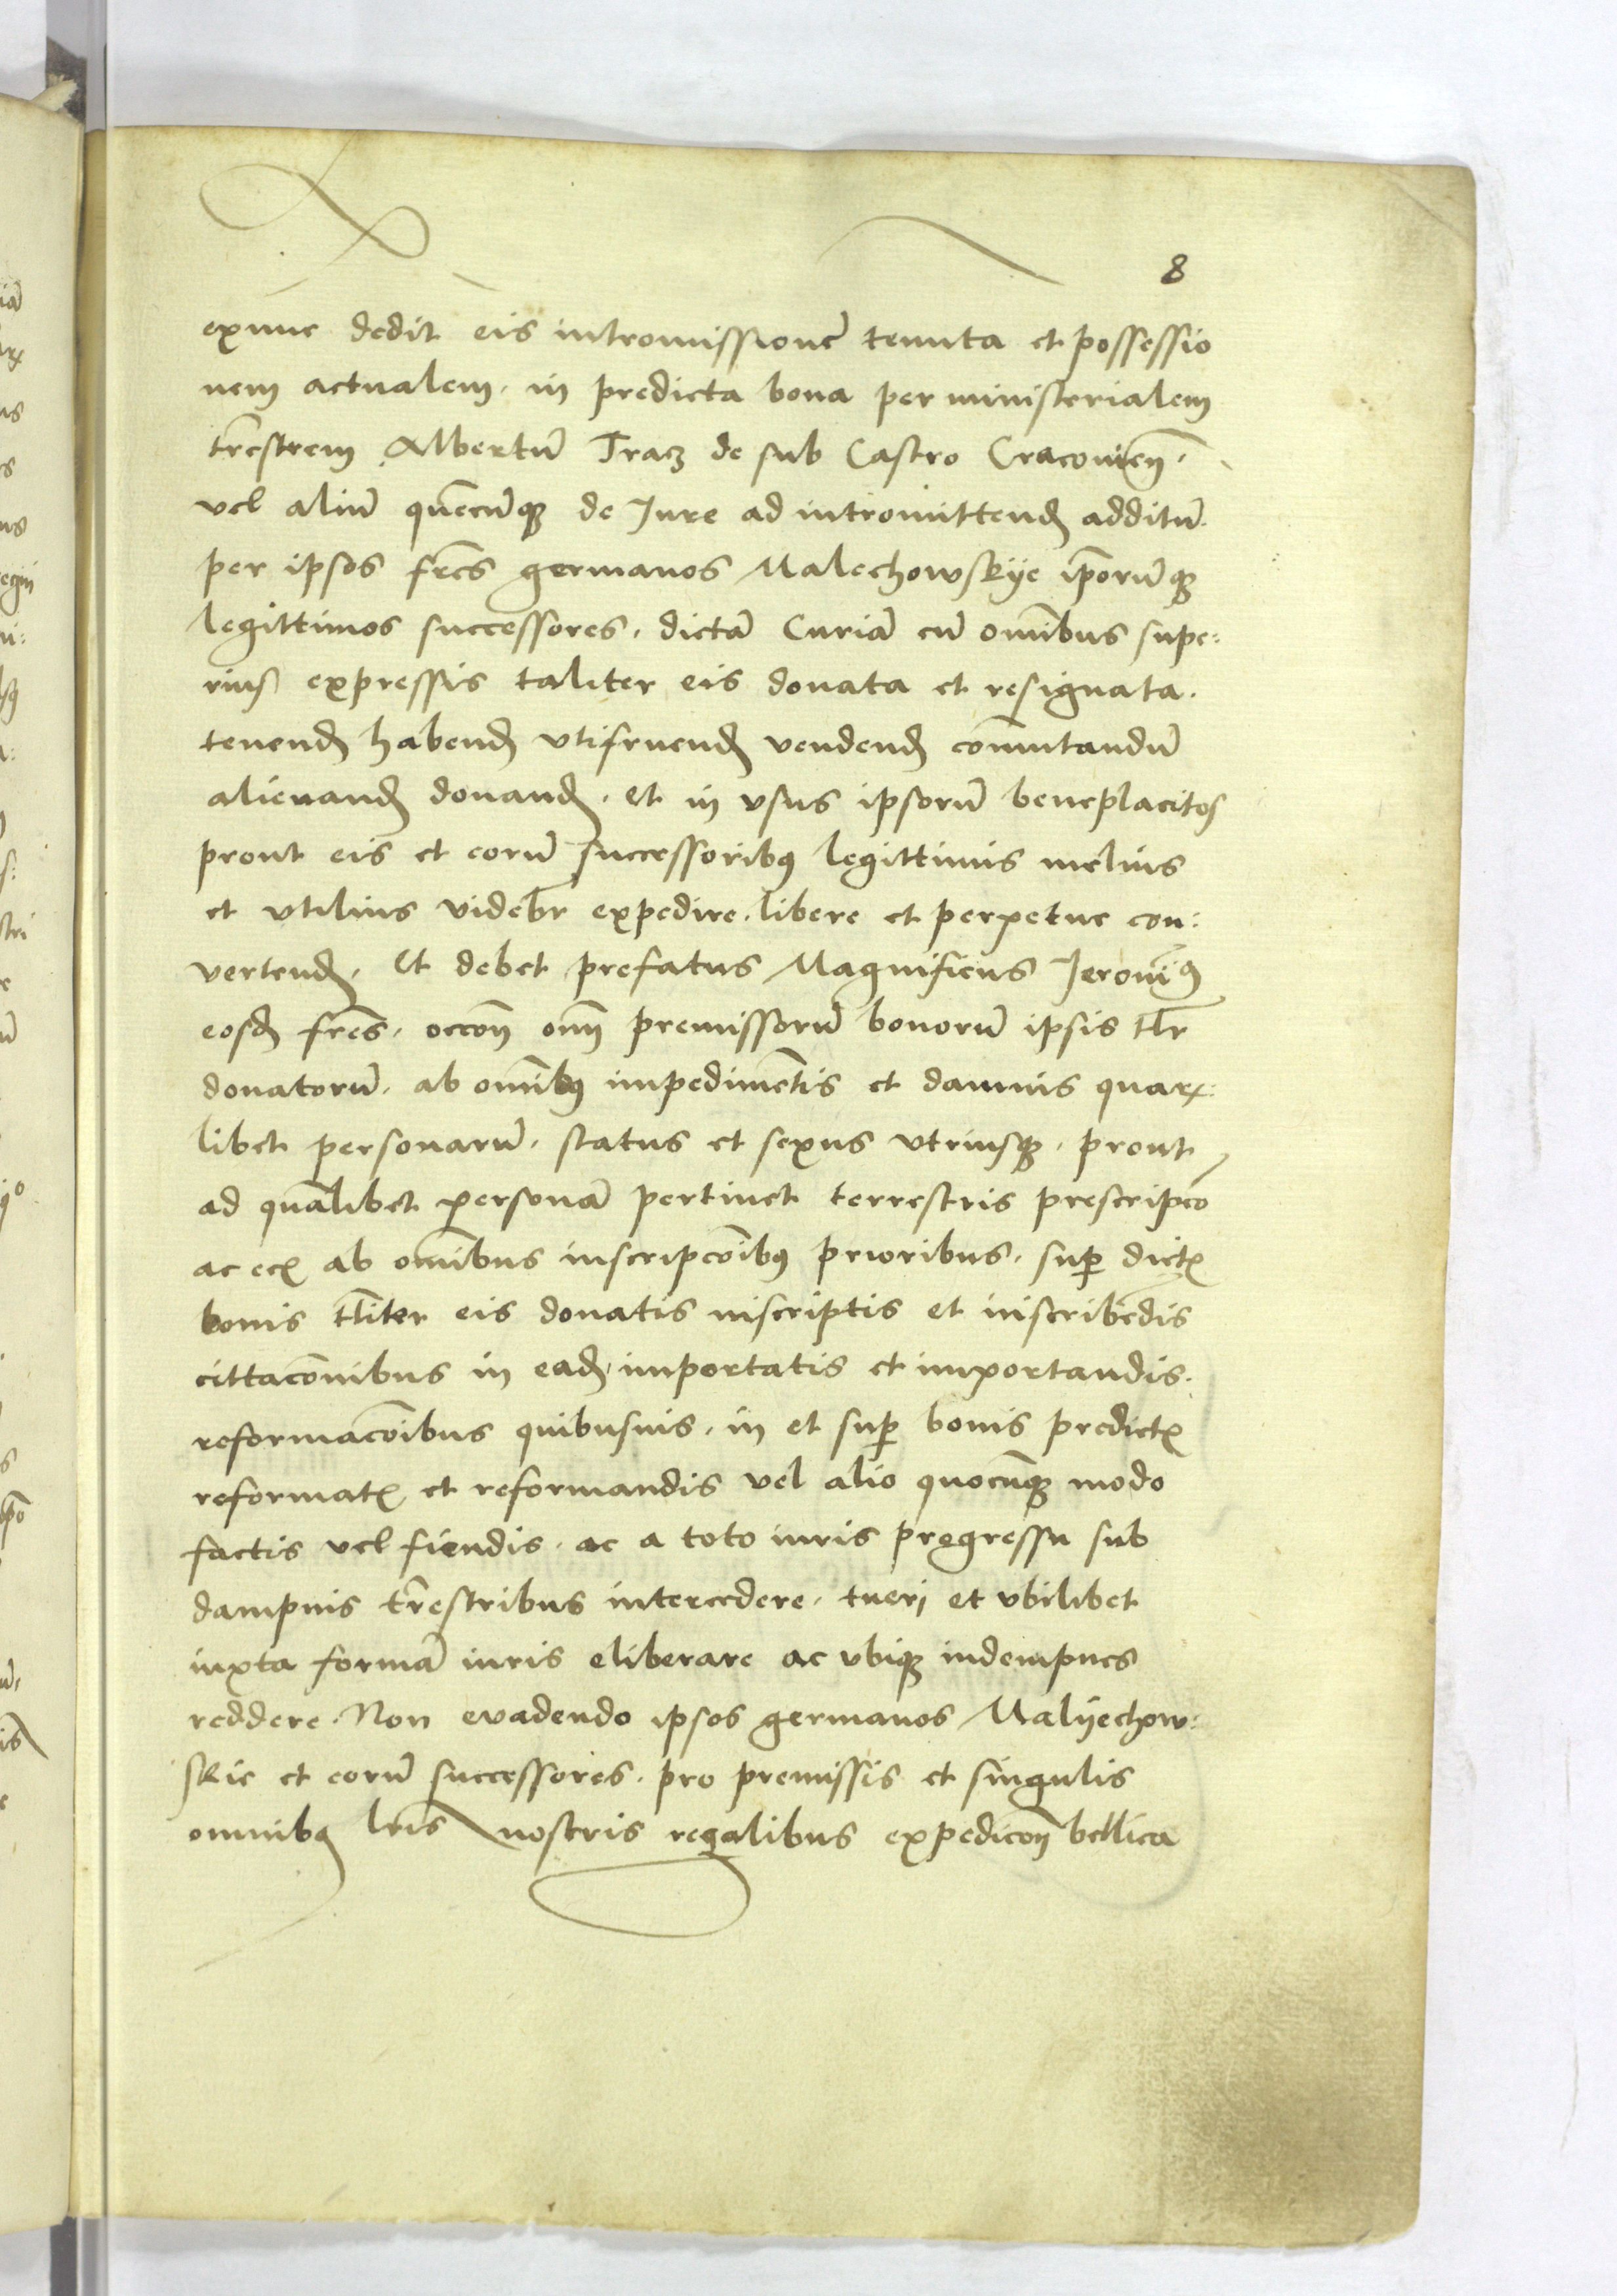 8
exnunc dedit eis intromissionē tenuta et possessio
nem actualem. in predicta bona per ministerialem
tr̄estrem Albertū Tracz de sub Castro Cracovien̄.
vel aliū quēcūqꝫ de Jure ad intromittendꝭ additū.
per ipsos fr̄es germanos Malechowskÿe ip̄orūqꝫ
legittimos successores. dictā Curiā cū om̄ibus supe:
rius expressis taliter eis donata et resignata.
tenendꝭ habendꝭ vtifruendꝭ vendendꝭ com̄utandū
alienandꝭ donandꝭ. et in vsus ipsorū beneplacitos
prout eis et eorū successoribꝰ legittimis melius
et vtilius videbr̄ expedire. libere et perpetue con:
vertendꝭ. Et debet prefatus Magnificus Jeronīꝰ
eosdꝭ fr̄es. occōn om̄ premissorū bonorū ipsis tlr̄
donatorū. ab om̄ibꝰ impedimētis et damnis quaꝝ:
libet personarū. status et sexus vtriusqꝫ. prout
ad quālibet personā pertinet terrestris prescripcō
ac ecꝭ ab om̄ibus inscripcōibꝰ prioribus. suꝑ dictꝭ
bonis tl̄iter eis donatis inscriptis et inscribēdis
cittacōnibus in eadꝭ importatis et importandis.
reformacōibus quibusuis. in et suꝑ bonis predictꝭ
reformatꝭ et reformandis vel alio quocūqꝫ modo
factis vel fiendis. ac a toto iuris progressu sub
dampnis tr̄estribus intercedere. tueri et vbilibet
iuxta formā iuris eliberare ac vbiqꝫ indempnes
reddere. Non evadendo ipsos germanos Malÿechow:
skie et eorū successores. pro premissis et singulis
omnibꝰ lr̄is nostris regalibus expedicōn bellica